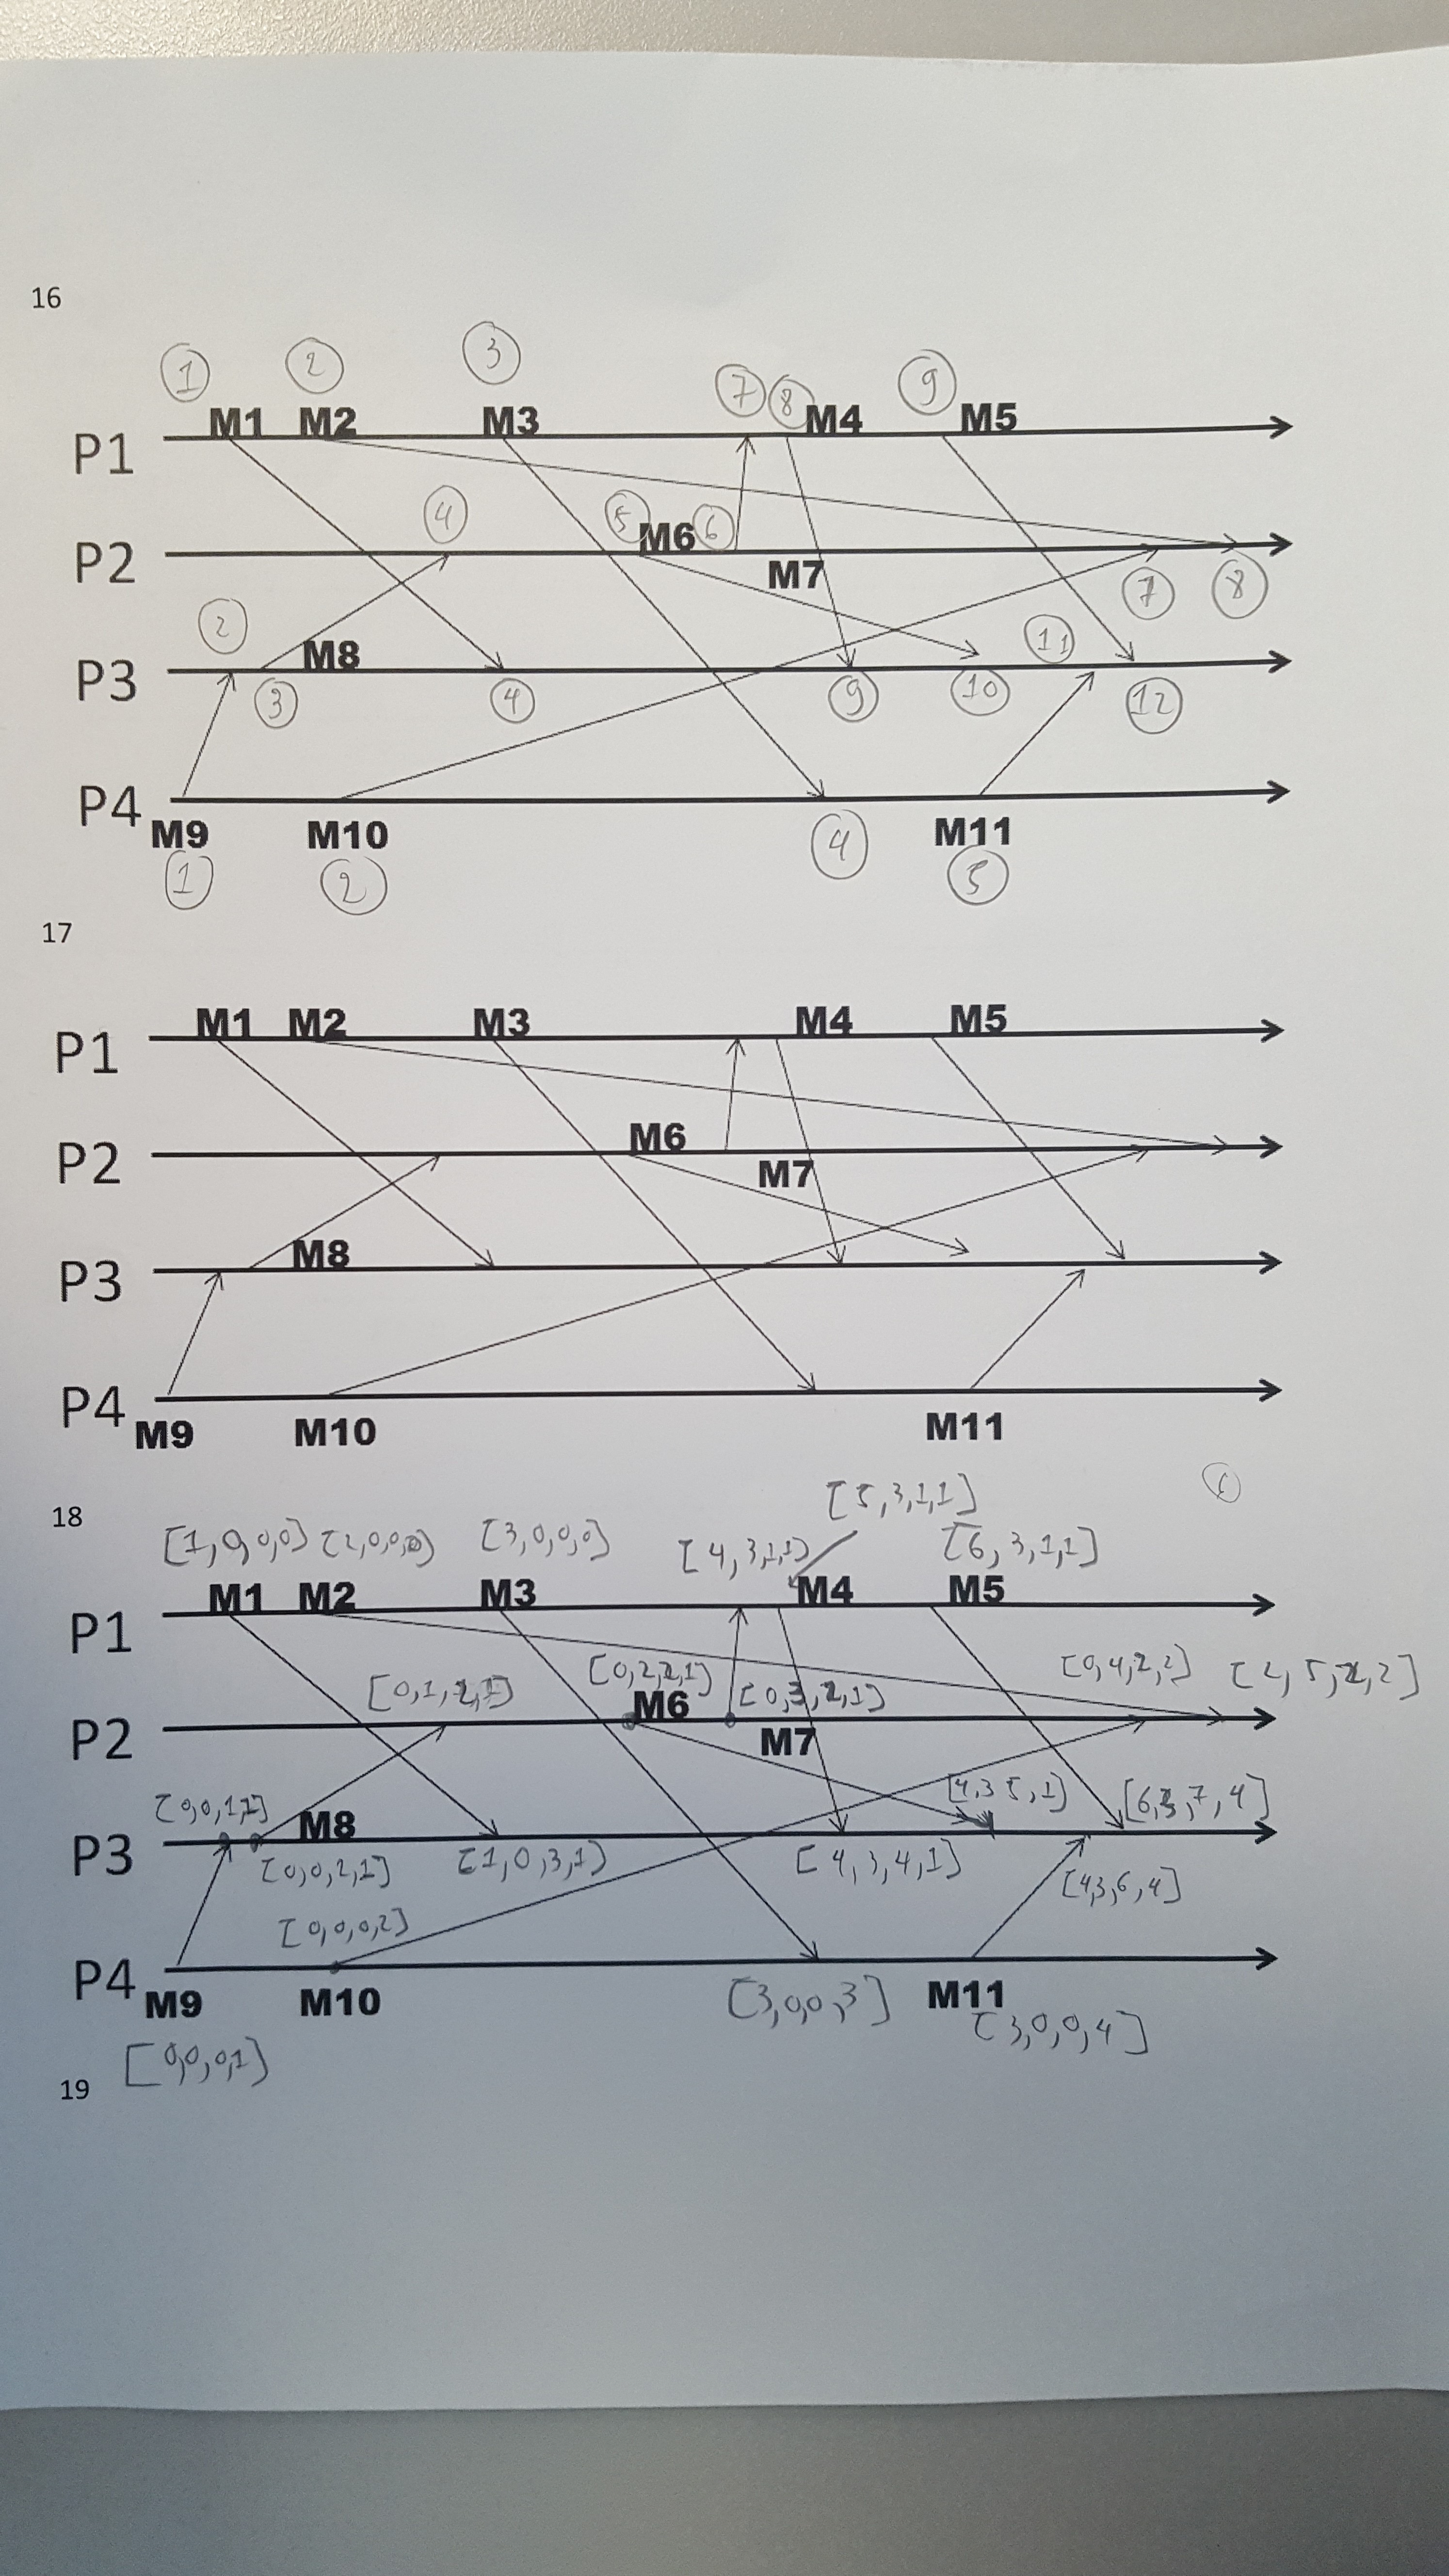 16
1 2 3 7 8 9
M1 M2 M3 M4 M5
P1
4 5 M6 6
P2
M7
7 8
2
M8 11
P3
3 4 9 10 12
P4
M9 M10 M11
1 2 4 5
17
M1 M2 M3 M4 M5
P1
M6
P2
M7
M8
P3
P4
M9 M10 M11
18
[5,3,1,1]
[1,0,0,0] [2,0,0,0] [3,0,0,0] [4,3,1,1] [6,3,1,1]
M1 M2 M3 M4 M5
P1
[0,4,2,2] [2,5,2,2]
[0,1,2,1] [0,2,2,1]
M6 [0,3,2,1]
P2
M7
[0,0,1,1] [4,3,5,1] [6,3,7,4]
M8
P3
[0,0,2,1] [1,0,3,1] [4,3,4,1]
[4,3,6,4]
[0,0,0,2]
P4
M9 M10 [3,0,0,3] M11
[3,0,0,4]
[0,0,0,1]
19